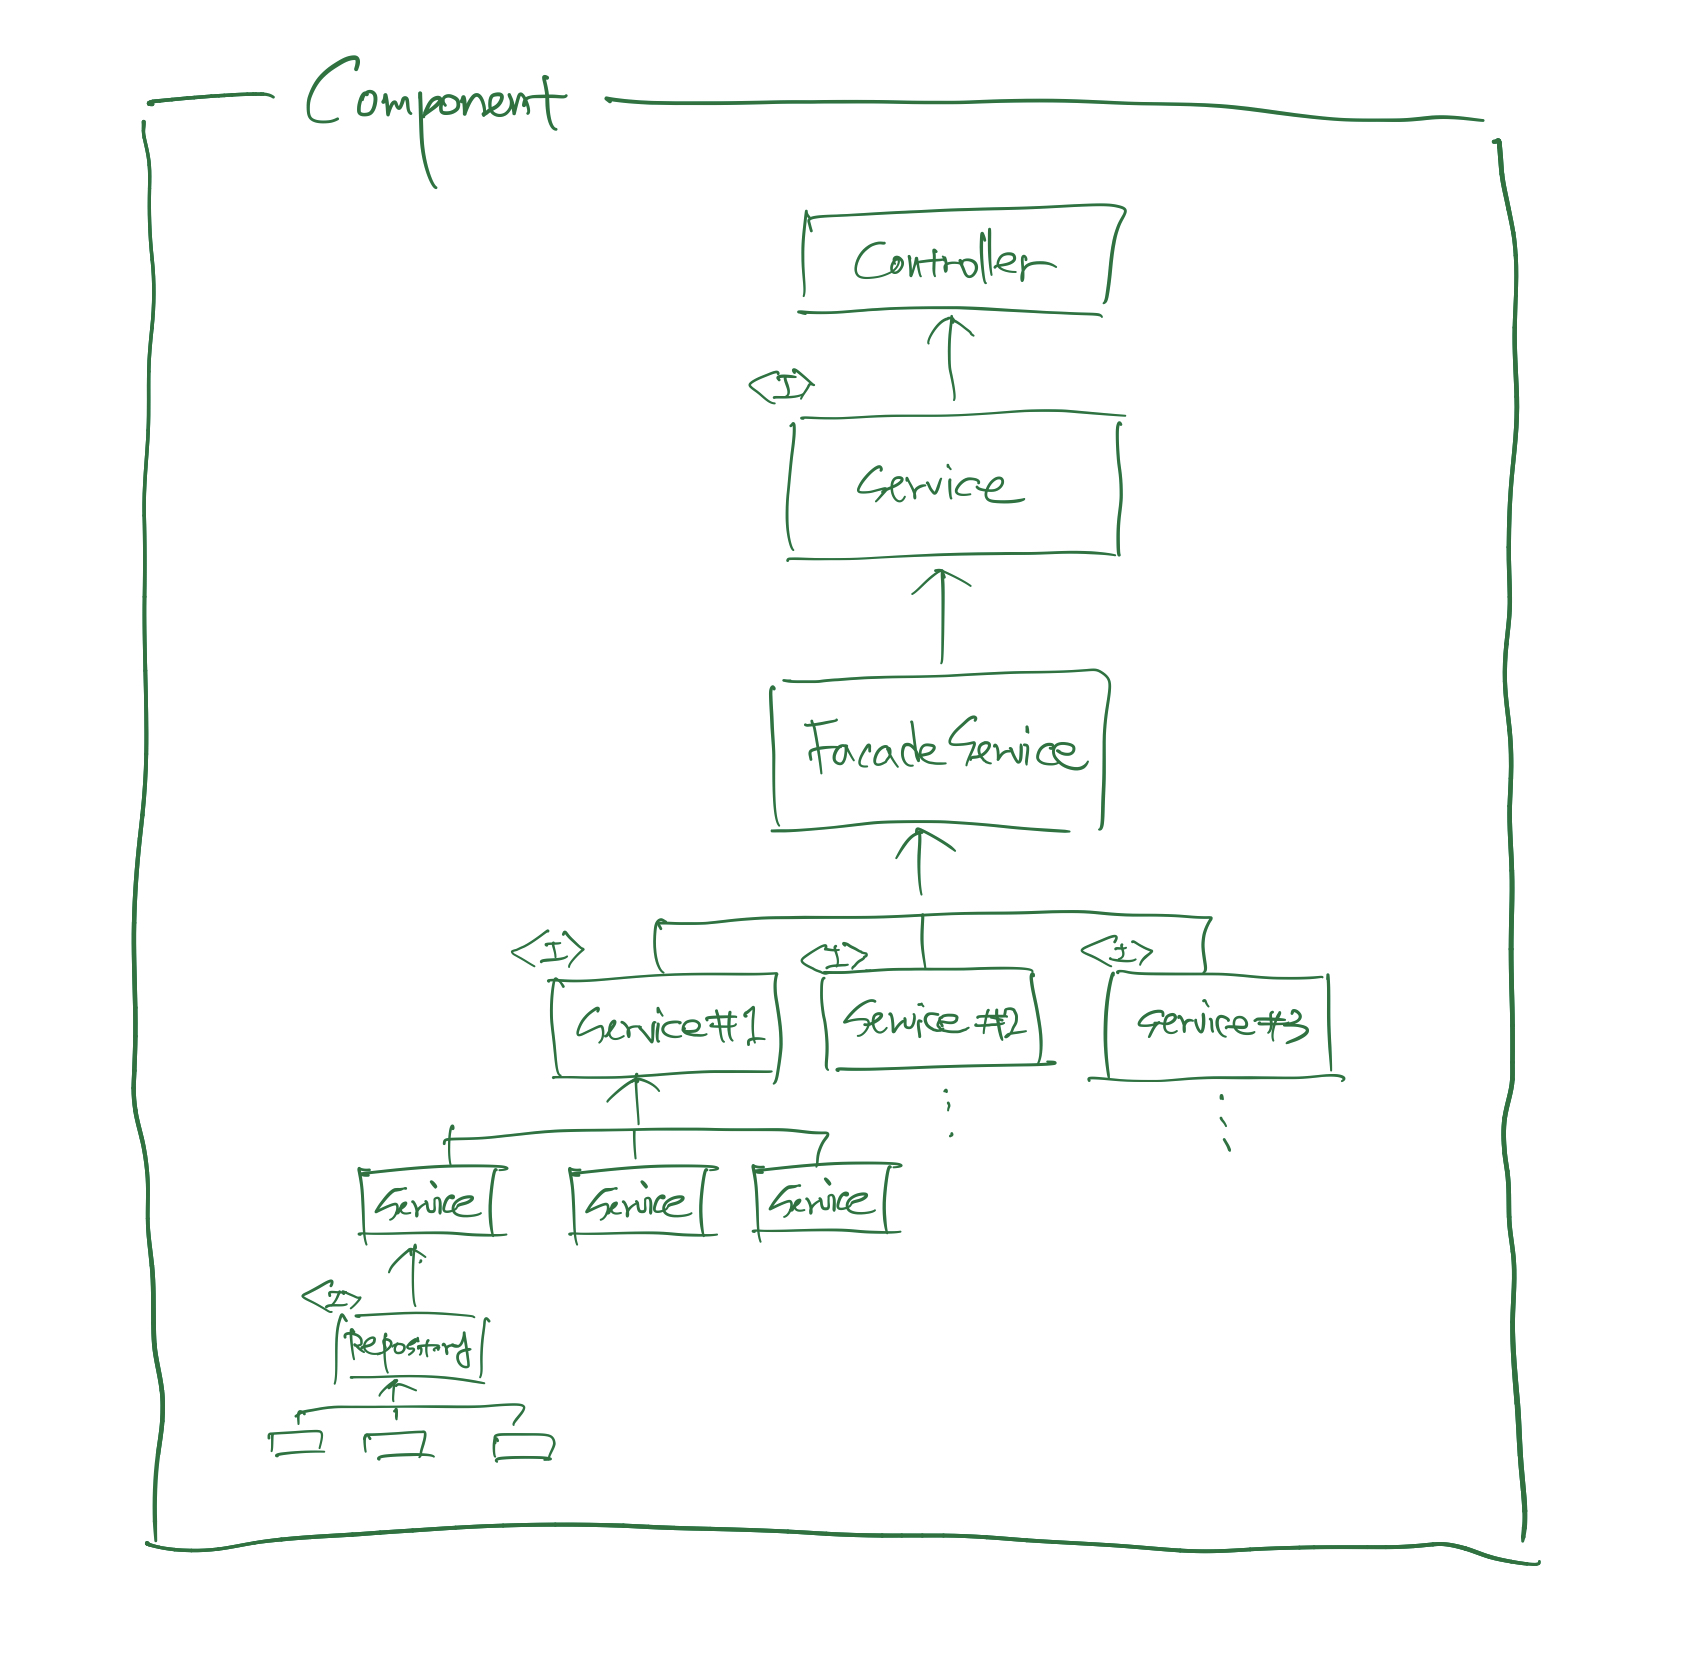 Component
Controller
<I>
Service
Facade Service
<I>
<I>
<I>
Service#1
Service #2
Service#3
Service
Service
Service
<I>
Repository